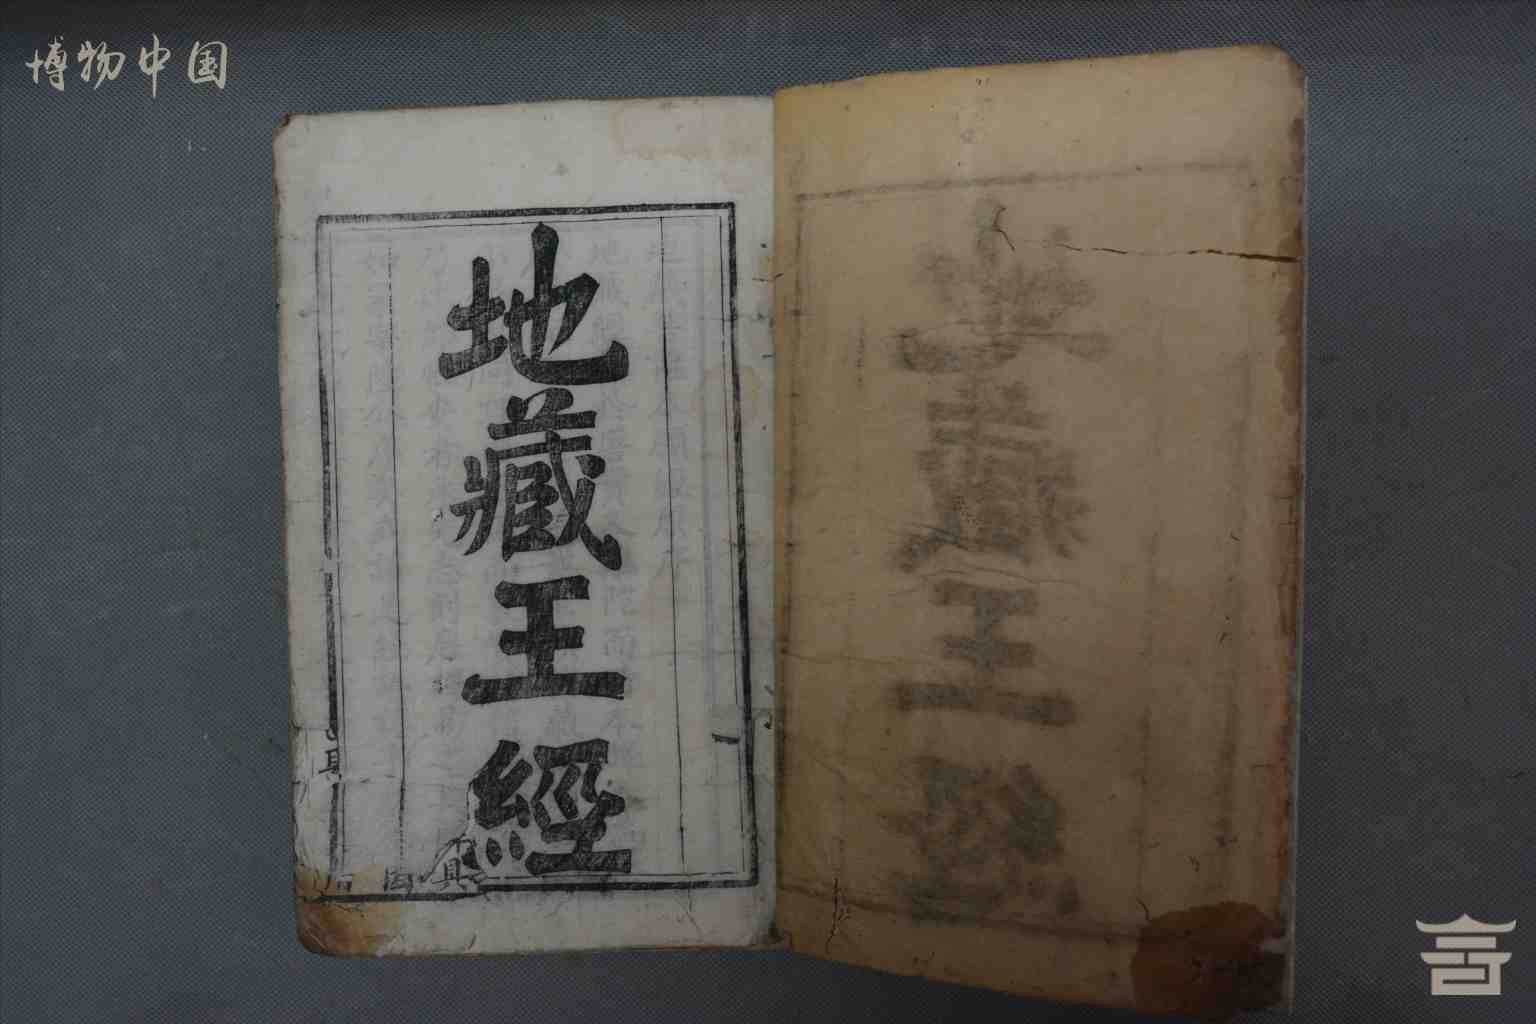 博物中国
地藏王經
具
具